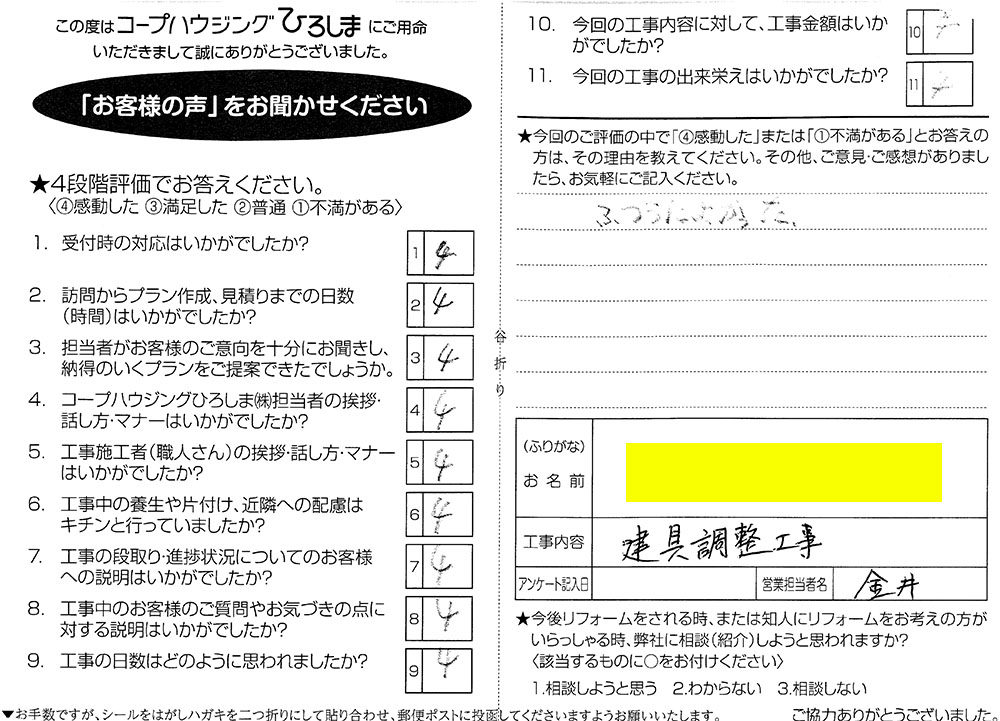 この度はコープハウジングひろしまにご用命
いただきまして誠にありがとうございました。
「お客様の声」をお聞かせください
★4段階評価でお答えください。
〈④感動した ③満足した ②普通 ①不満がある〉
1. 受付時の対応はいかがでしたか?
1 4
2. 訪問からプラン作成、見積りまでの日数
(時間)はいかがでしたか?
2 4
3. 担当者がお客様のご意向を十分にお聞きし、
納得のいくプランをご提案できたでしょうか。
3 4
4. コープハウジングひろしま㈱担当者の挨拶・
話し方・マナーはいかがでしたか?
4 4
5. 工事施工者(職人さん)の挨拶・話し方・マナー
はいかがでしたか?
5 4
6. 工事中の養生や片付け、近隣への配慮は
キチンと行っていましたか?
6 4
7. 工事の段取り・進捗状況についてのお客様
への説明はいかがでしたか?
7 4
8. 工事中のお客様のご質問やお気づきの点に
対する説明はいかがでしたか?
8 4
9. 工事の日数はどのように思われましたか?
9 4
▼お手数ですが、シールをはがしハガキを二つ折りにして貼り合わせ、郵便ポストに投函してくださいますようお願いいたします。
谷折り
10. 今回の工事内容に対して、工事金額はいか
がでしたか?
10
11. 今回の工事の出来栄えはいかがでしたか?
11
★今回のご評価の中で「④感動した」または「①不満がある」とお答えの
方は、その理由を教えてください。その他、ご意見・ご感想がありまし
たら、お気軽にご記入ください。
(ふりがな)
お名前
工事内容 建具調整工事
アンケート記入日 営業担当者名 金井
★今後リフォームをされる時、または知人にリフォームをお考えの方が
いらっしゃる時、弊社に相談(紹介)しようと思われますか?
〈該当するものに○をお付けください〉
1.相談しようと思う 2.わからない 3.相談しない
ご協力ありがとうございました。